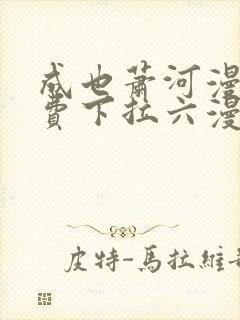 成也蕭河漫
費下拉六漫
皮特-馬拉維